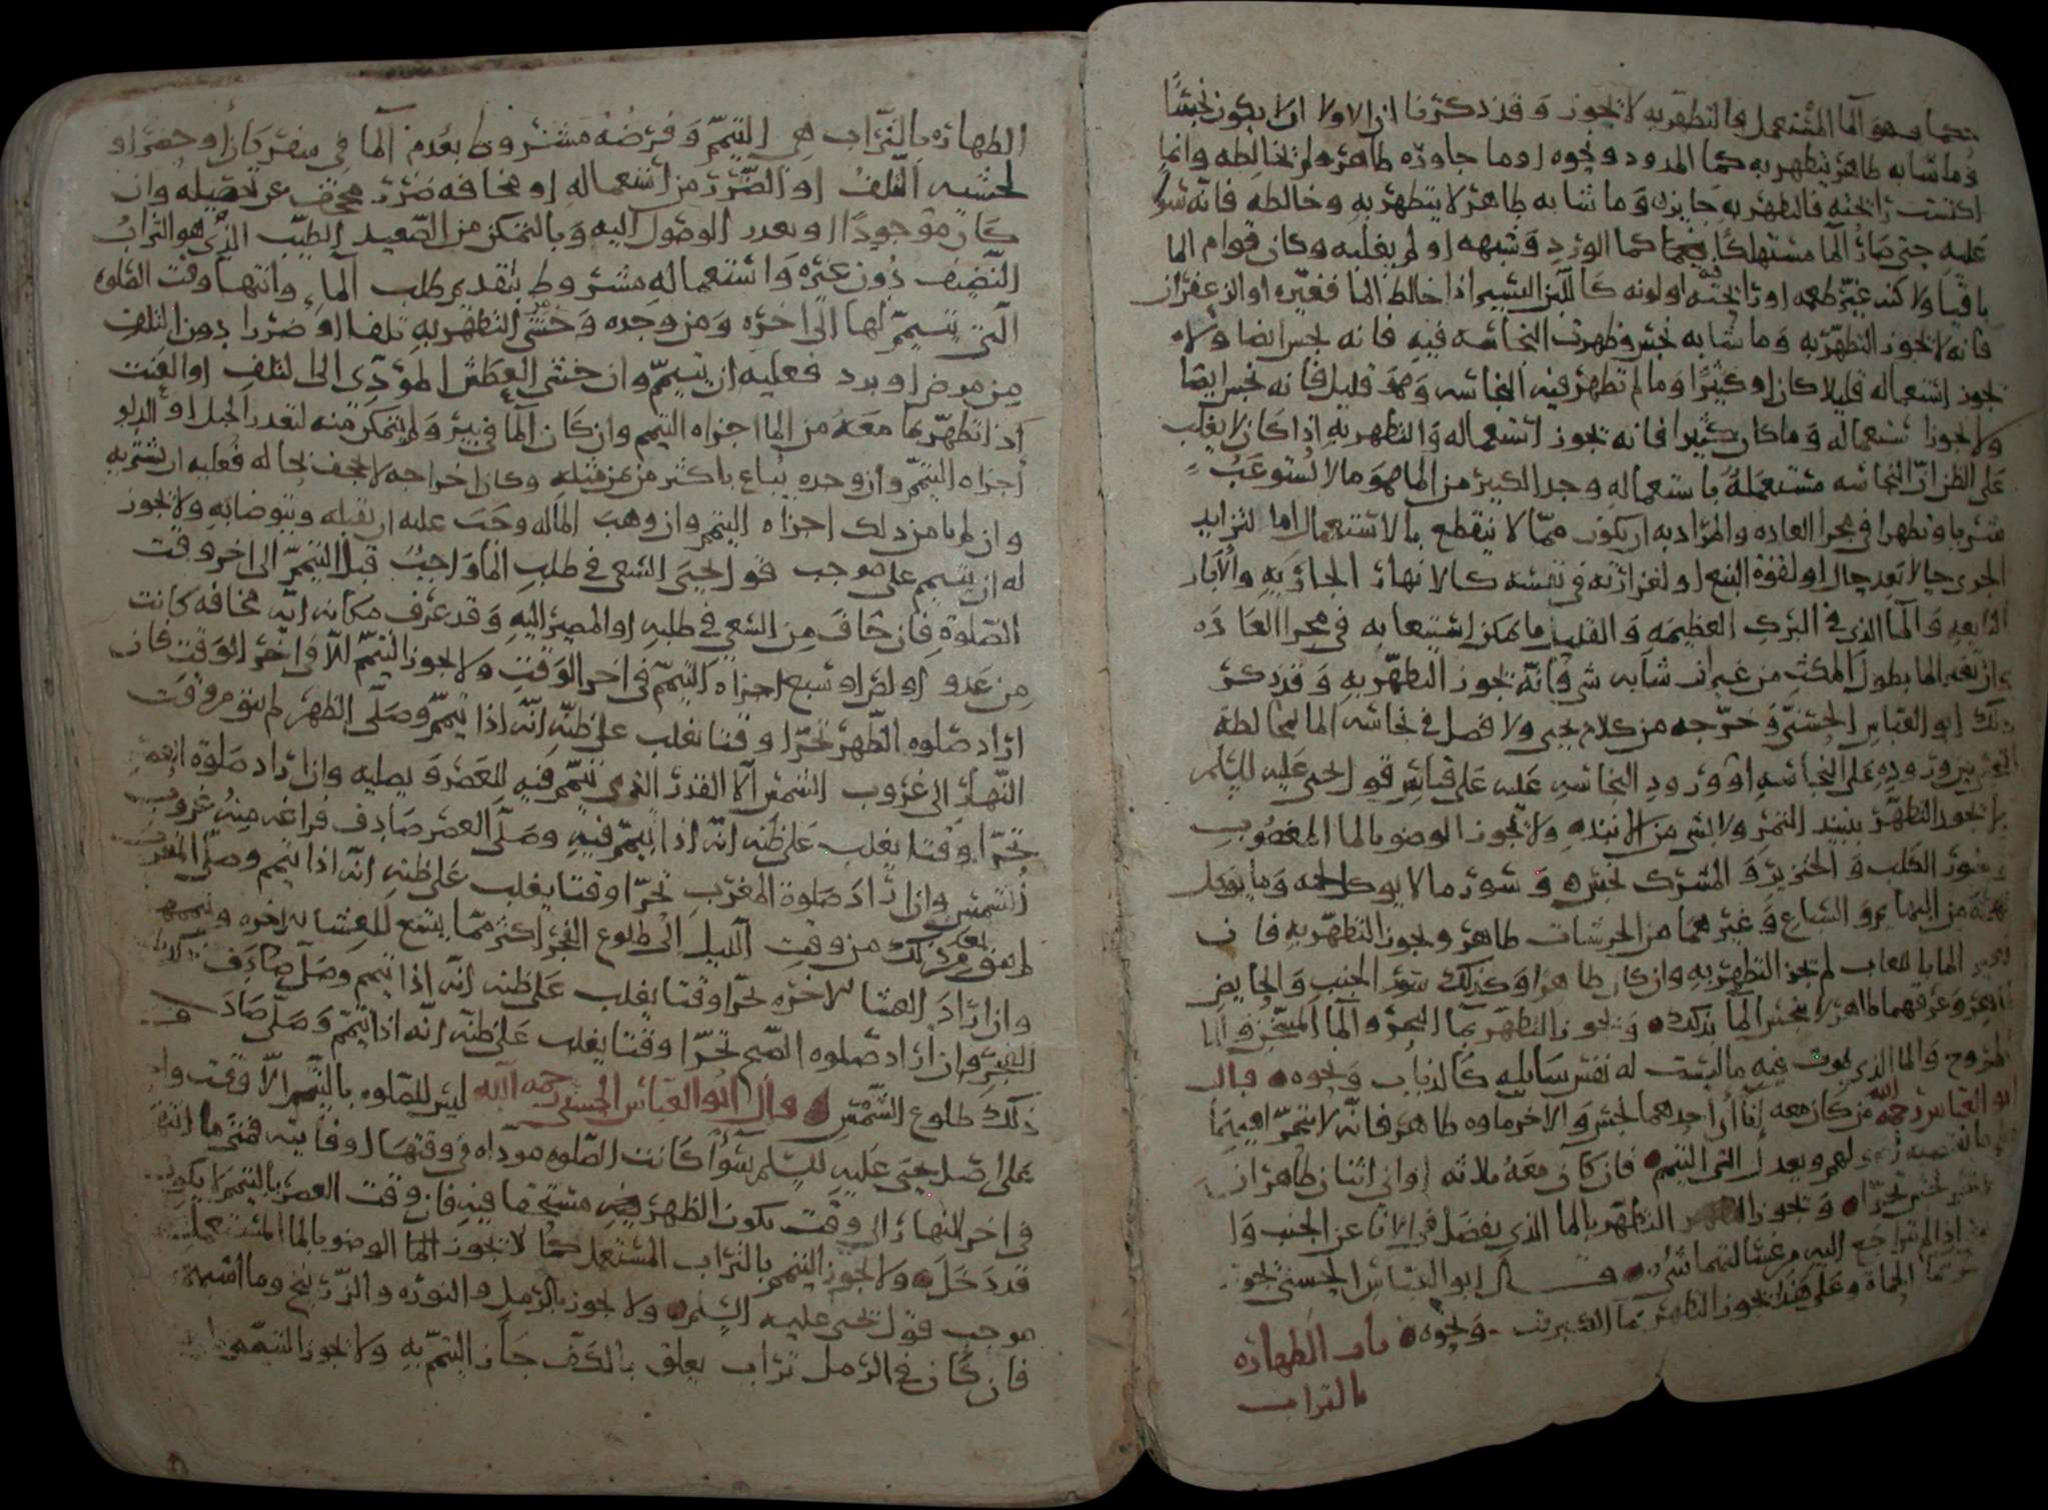 وهو الما المستعمل والتطهر به لا يجوز وقد ذكرنا ان الاولا ان لا يكون نجسًا
وما شابه طاهر يتطهر به كما المدود ونحوه او ما جاوره طاهر ولم يخالطه وانما
اكتسب رائحته فالتطهر به جايز وما شابه طاهر لا يتطهر به وخالطه فانه
عليه حتى صار الما مستهلكًا كما الورد وشبهه او لم يغلبه وكان قوام الما
باقيا ولاكنه غير طعمه او رائحته او لونه كاللبن اليسير اذا خالط الما فغيره او الزعفران
فانه لا يجوز التطهر به وما شابه نجس وظهرت النجاسه فيه فانه نجس ايضا ولا
يجوز استعماله قليلا كان او كثيرًا وما لم تظهر فيه النجاسه وهو قليل فانه نجس ايضا
ولا يجوز استعماله وما كان كثيرا فانه يجوز استعماله والتطهر به اذا كان لا يغلب
على الظن ان النجاسه مستعملة باستعماله وحد الكثير من الما هو ما لا يستوعب
شربا وتطهرا في مجرا العاده والمراد به ان يكون مما لا ينقطع بالاستعمال اما لتزايد
الجري حالا بعد حال او لقوة النبع او لغزارته في نفسه كالانهار الجاريه والابار
النابعه والما الذي في البرك العظيمه والقليل ما يمكن استيعابه في مجرا العاده
وان تغير الما بطول المكث من غير ان شابه شي فانه يجوز التطهر به وقد ذكر
ذلك ابو العباس الحسني وخرجه من كلام يحيى ولا فصل في نجاسة الما لمخالطة
بين وروده على النجاسه او ورود النجاسه عليه على قياس قول يحيى عليه السلم
لا يجوز التطهر بنبيذ التمر ولا بشي من الانبذه ولا يجوز الوضو بالما المغصوب
وسور الكلب والخنزير والمشرك نجس وسور ما لا يوكل لحمه وما يوكل
لحمه من البهايم والسباع وغيرهما من الحرشات طاهر ويجوز التطهر به فان
تغير الما باللعاب لم يجز التطهر به وان كان طاهرا وكذلك سور الجنب والحايض
طاهر وعرقهما طاهر لا ينجس الما بذلك ويجوز التطهر بما البحر والما المسخن والما
المروح والما الذي يموت فيه ما ليست له نفس سايله كالذباب ونحوه قال
ابو العباس رحمه الله من كان معه اناان احدهما نجس والاخر ماوه طاهر فانه لا يتحرا
ويعدل الى التيمم فان كان معه ثلاثه اواني اثنان طاهران
نجس تحرا ويجوز التطهر بالما الذي يفضل في الانا عن الجنب
اذا لم تراجع اليه من غسالتهما شي قال ابو العباس الحسني يجوز
بما الحماة وعلى هذا يجوز التطهر بما الكبريت ونحوه باب الطهاره
بالتراب
الطهاره بالتراب هي التيمم وفرضه مشروط بعدم الما في سفر كان او حضر او
لخشيه التلف او الضرر من استعماله او مخافه ضرر مجحف عن تحصيله وان
كان موجودًا او بعدد الوصول اليه وبالتمكن من الصعيد الطيب الذي هو التراب
النضيف دون غيره واستعماله مشروط بتقديم طلب الماء وانتها وقت الصلوه
التي تيمم لها الى اخره ومن وجده وخشى من التطهر به تلفا او ضررا دون التلف
من مرض او برد فعليه ان يتيمم وان خشى العطش المؤدي الى التلف او العنت
اذا تطهر بما معه من الما اجزاه التيمم وان كان الما في بير ولم يتمكن منه لتعذر الحبل او الدلو
اجزاه التيمم وان وجده يباع باكثر من ثمن مثله وكان اخراجه لا يجحف بحاله فعليه ان يشتريه
وان لم يامن ذلك اجزاه التيمم وان وهب الما له وجب عليه ان يقبله ويتوضا به ولا يجوز
له ان يتيمم على موجب قول يحيى السعي في طلب الما واجب قبل التيمم الى اخر وقت
الصلوة فان خاف من السعي في طلبه او المصير اليه وقد عرف مكانه انه مخافه كانت
من عدو او لص او سبع اجزاه التيمم في اخر الوقت ولا يجوز التيمم الا في اخر الوقت فان
اراد صلوه الظهر تحرا وقتا يغلب على ظنه انه اذا تيمم وصلى الظهر لم يبق من وقت
النهار الى غروب الشمس الا القدر الذي تيمم فيه للعصر ويصليه وان اراد صلوة العصر
تحرا وقتا يغلب على ظنه انه اذا تيمم فيه وصلى العصر صادف فراغه منه غروب
الشمس وان اراد صلوة المغرب تحرا وقتا يغلب على ظنه انه اذا تيمم وصلى المغرب
لم يبق بعد ذلك من وقت الليل الى طلوع الفجر اكثر مما يتسع للعشا الاخره وتيممها
وان اراد العشا الاخره تحرا وقتا يغلب على ظنه انه اذا تيمم وصلى صادف
الفجر وان اراد صلوه الصبح تحرا وقتا يغلب على ظنه انه اذا تيمم وصلى صادف
ذلك طلوع الشمس قال ابو العباس الحسني رحمه الله ليس للصلوه بالتيمم الا وقت واحد
على اصل يحيى عليه السلم سوا كانت الصلوه موداه في وقتها او فايته فمتى ما
في اخر النهار الى وقت يكون الظهر فيه مستحقا فيه فان وقت العصر بالتيمم لا يكون
قد دخل ولا يجوز التيمم بالتراب المستعمل كما لا يجوز الوضو بالما المستعمل
موجب قول يحيى عليه السلم ولا يجوز بالرمل والنوره والزرنيخ وما اشبهه
فان كان في الرمل تراب يعلق بالكف جاز التيمم به ولا يجوز التيمم